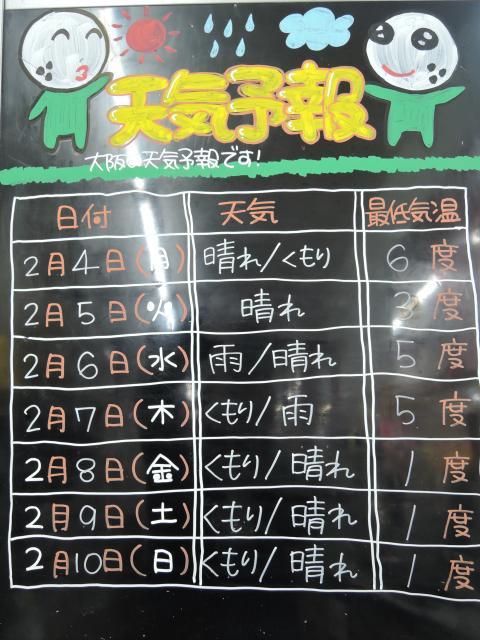 天気予報
大阪の天気予報です!
日付 天気 最低気温
2月4日(月) 晴れ/くもり 6度
2月5日(火) 晴れ 3度
2月6日(水) 雨/晴れ 5度
2月7日(木) くもり/雨 5度
2月8日(金) くもり/晴れ 1度
2月9日(土) くもり/晴れ 1度
2月10日(日) くもり/晴れ 1度